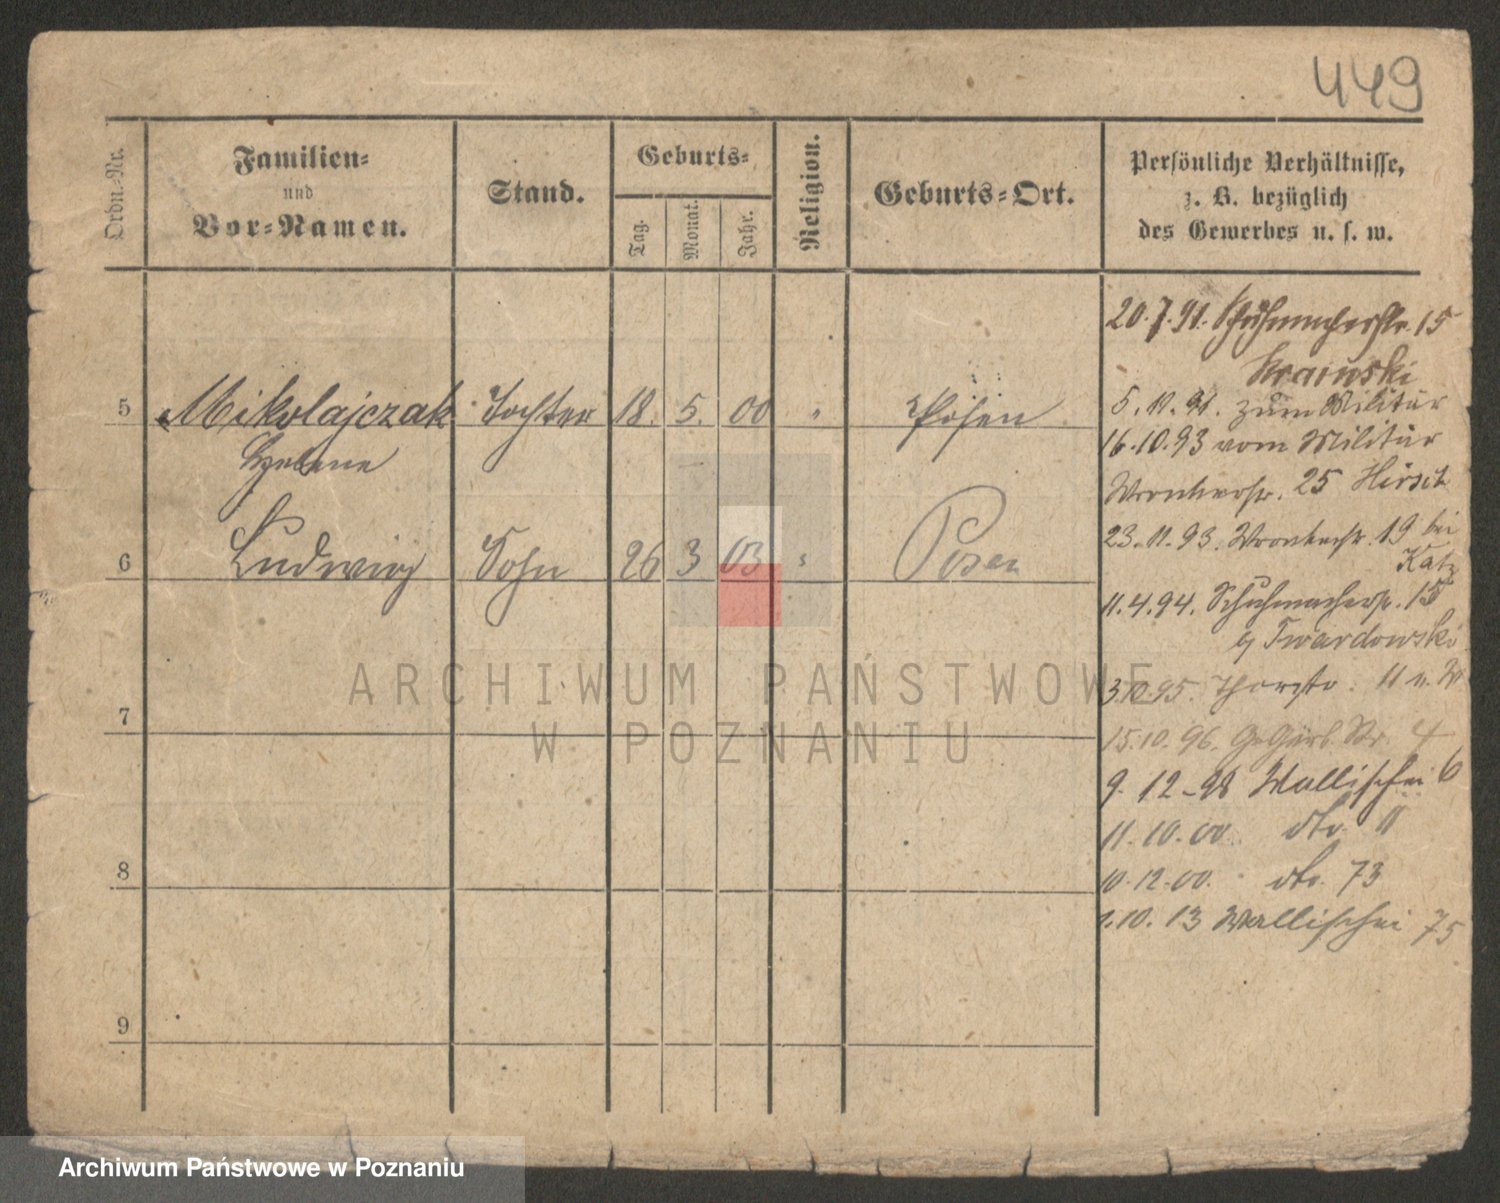 449
Ordn.-Nr.
Familien-
und
Vor-Namen.
Stand.
Geburts-
Tag.
Monat.
Jahr.
Religion.
Geburts-Ort.
Persönliche Verhältnisse,
z. B. bezüglich
des Gewerbes u. s. w.
5 Mikolajczak Tochter 18. 5. 00 " Posen
Helene
6 Ludwig Sohn 26 3 03 " Posen
7
8
9
20.7.91. Schuhmacherstr. 15
5.11.91. zum Militär
16.10.93 vom Militär
Wronkerstr. 25 Hirsch
23.11.93. Wronkerstr. 19 bei
Katz
11.4.94. Schuhmacherstr. 15
b/ Twardowski
3.10.95. Thorstr. 11 u. W
15.10.96. Gr. Gerb. Str. 4
9.12-98 Wallischei 6
11.10.00. dto. 11
10.12.00. dto. 73
1.10.13 Wallischei 75
ARCHIWUM PAŃSTWOWE
W POZNANIU
Archiwum Państwowe w Poznaniu